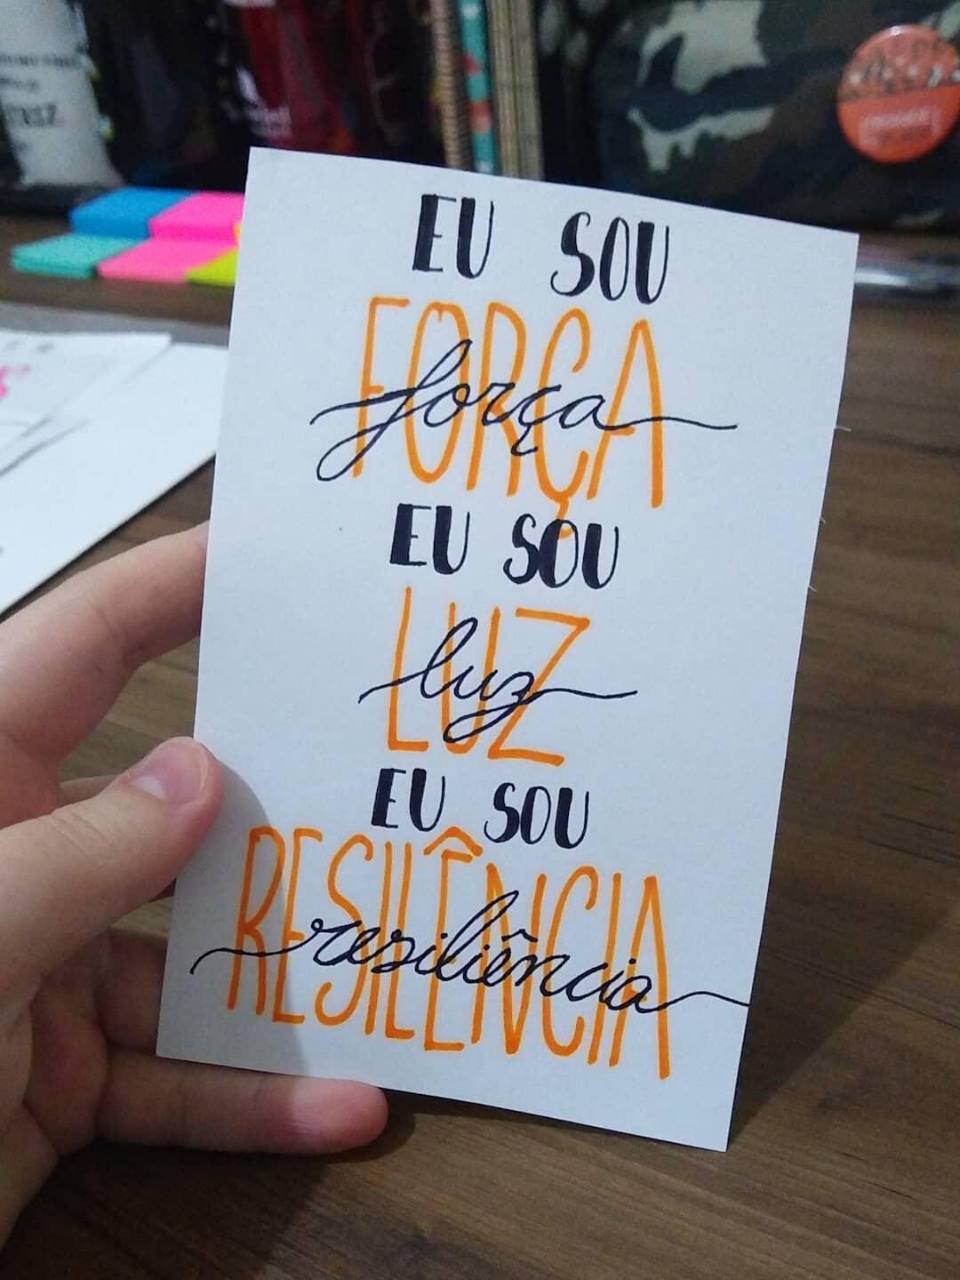 EU SOU
FORÇA
força
EU SOU
LUZ
luz
EU SOU
RESILÊNCIA
resiliência